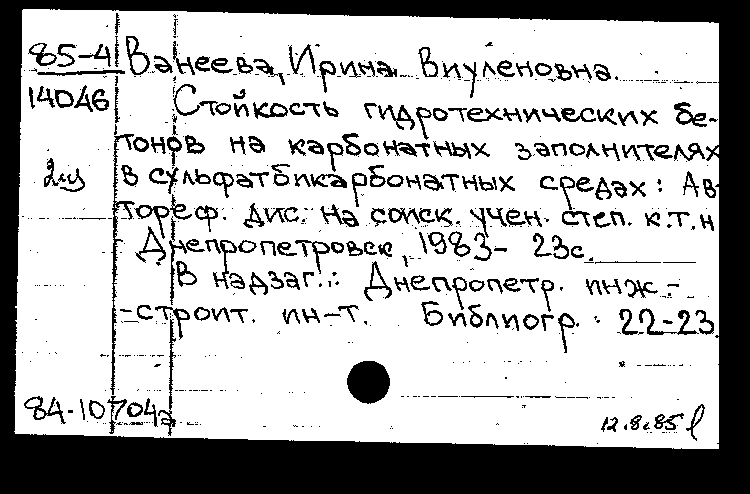 85-4 Ванеева, Ирина Виуленовна.
14046 Стойкость гидротехнических бе-
тонов на карбонатных заполнителях
2из в сульфатбикарбонатных средах: Ав-
тореф. дис. на соиск. учен. степ. к.т.н
Днепропетровск, 1983- 23с.
В надзаг.: Днепропетр. инж.-
-строит. ин-т. Библиогр.: 22-23.
84-10704а
12.8.85